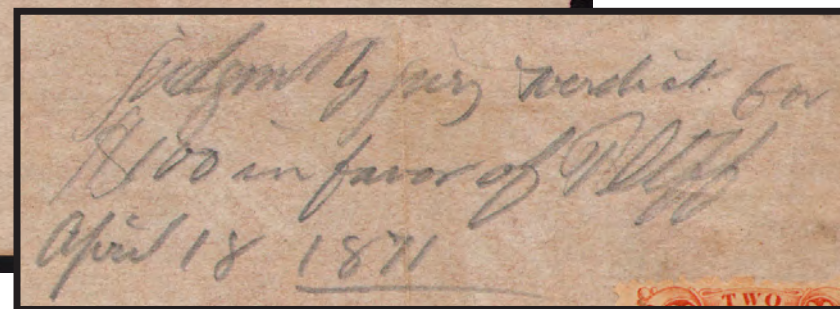 judgmt by jury verdict for
$100 in favor of Plff
April 18 1871
TWO